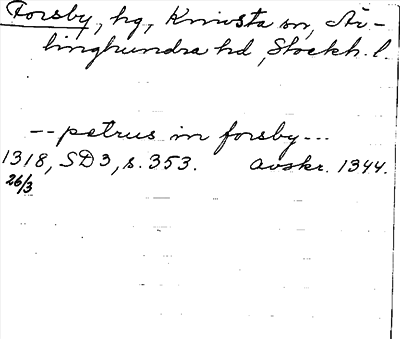 Forsby, hg, Knivsta sn, Är-
linghundra hd, Stockh. l.
-- petrus in forsby ---
1318, SD3, s. 353. Avskr. 1344.
26/3